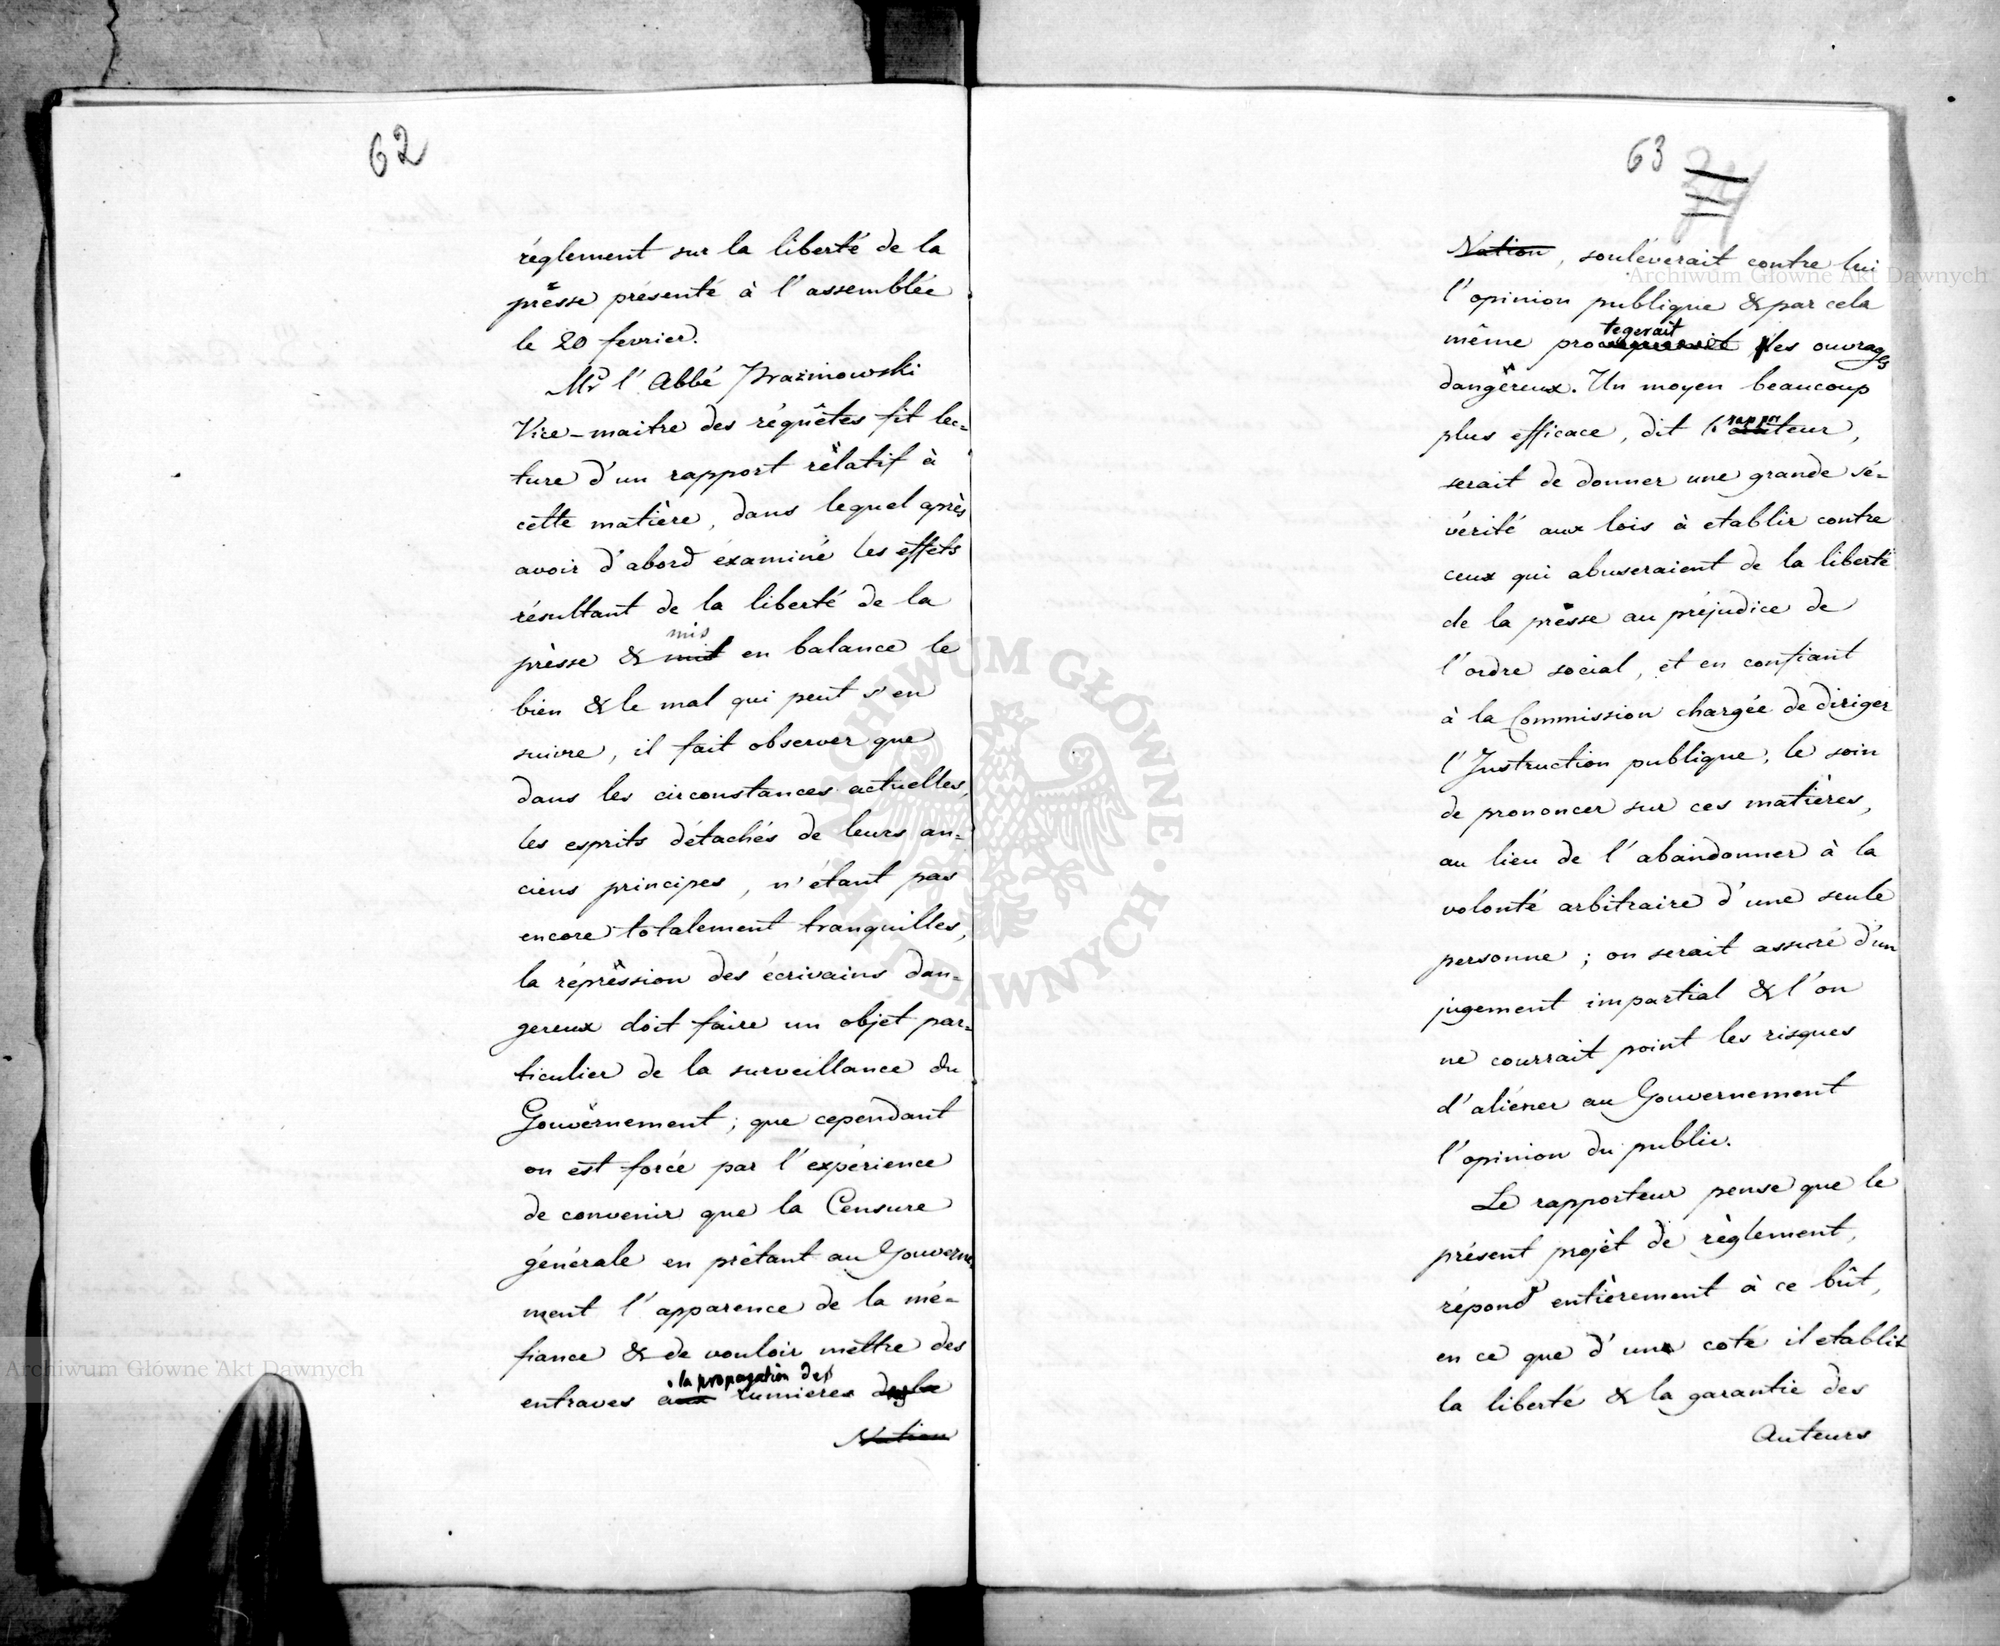 62
réglement sur la liberté de la
prèsse présenté à l'assemblée
le 20 fevrier.
Mr l'Abbé Prazmowski
Vice-maitre des réquêtes fit lec=
ture d'un rapport rélatif à
cètte matière, dans lequel après
avoir d'abord éxaminé les effets
résultant de la liberté de la
mis
prèsse & mit en balance le
bien & le mal qui peut s'en
suivre, il fait observer que
dans les circonstances actuelles,
les esprits détachés de leurs an=
ciens principes, n'étant pas
encore totalement tranquilles,
la réprèssion des écrivains dan=
gereux doit faire un objet par=
ticulier de la surveillance du
Gouvèrnement; que cependant
on est forcé par l'expérience
de convenir que la Censure
générale en prêtant au Gouverne
ment l'apparence de la mé=
fiance & de vouloir mèttre des
à la propagation des
entraves aux lumieres de la
Nation
63
Nation, souléverait contre lui
l'opinion publique & par cela
tegerait
même pro les ouvrages
dangéreux. Un moyen beaucoup
rappor
plus efficace, dit l'auteur,
serait de donner une grande sé=
vérité aux lois à etablir contre
ceux qui abuseraient de la liberté
de la prèsse au préjudice de
l'ordre social, et en confiant
à la Commission chargée de diriger
l'Instruction publique, le soin
de prononcer sur ces matières,
au lieu de l'abandonner à la
volonté arbitraire d'une seule
personne; on serait assuré d'un
jugement impartial & l'on
ne courrait point les risques
d'aliéner au Gouvernement
l'opinion du public.
Le rapporteur pense que le
présent projèt de règlement,
répond entièrement à ce bût,
en ce que d'un coté il etablit
la liberté & la garantie des
Auteurs
Archiwum Główne Akt Dawnych
Archiwum Główne Akt Dawnych
ARCHIWUM GŁÓWNE AKT DAWNYCH